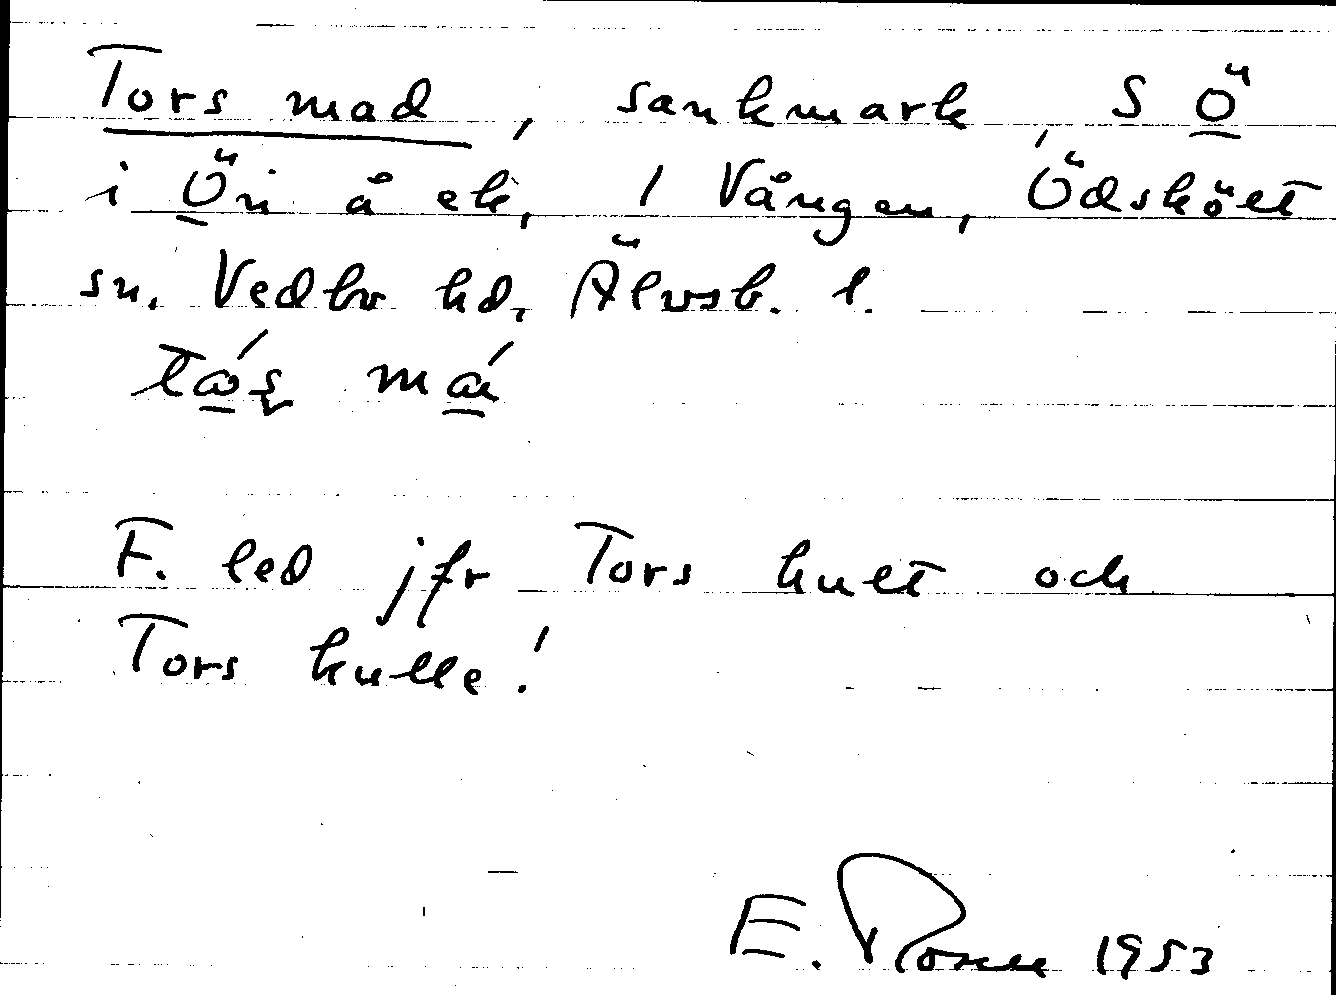 Tors mad, sankmark, S Ö
i Öri å ek, 1 Vången, Ödskölt
sn. Vedbo hd, Älvsb. l.
F. led jfr Tors hult och
Tors kulle!
E. Rosell 1953